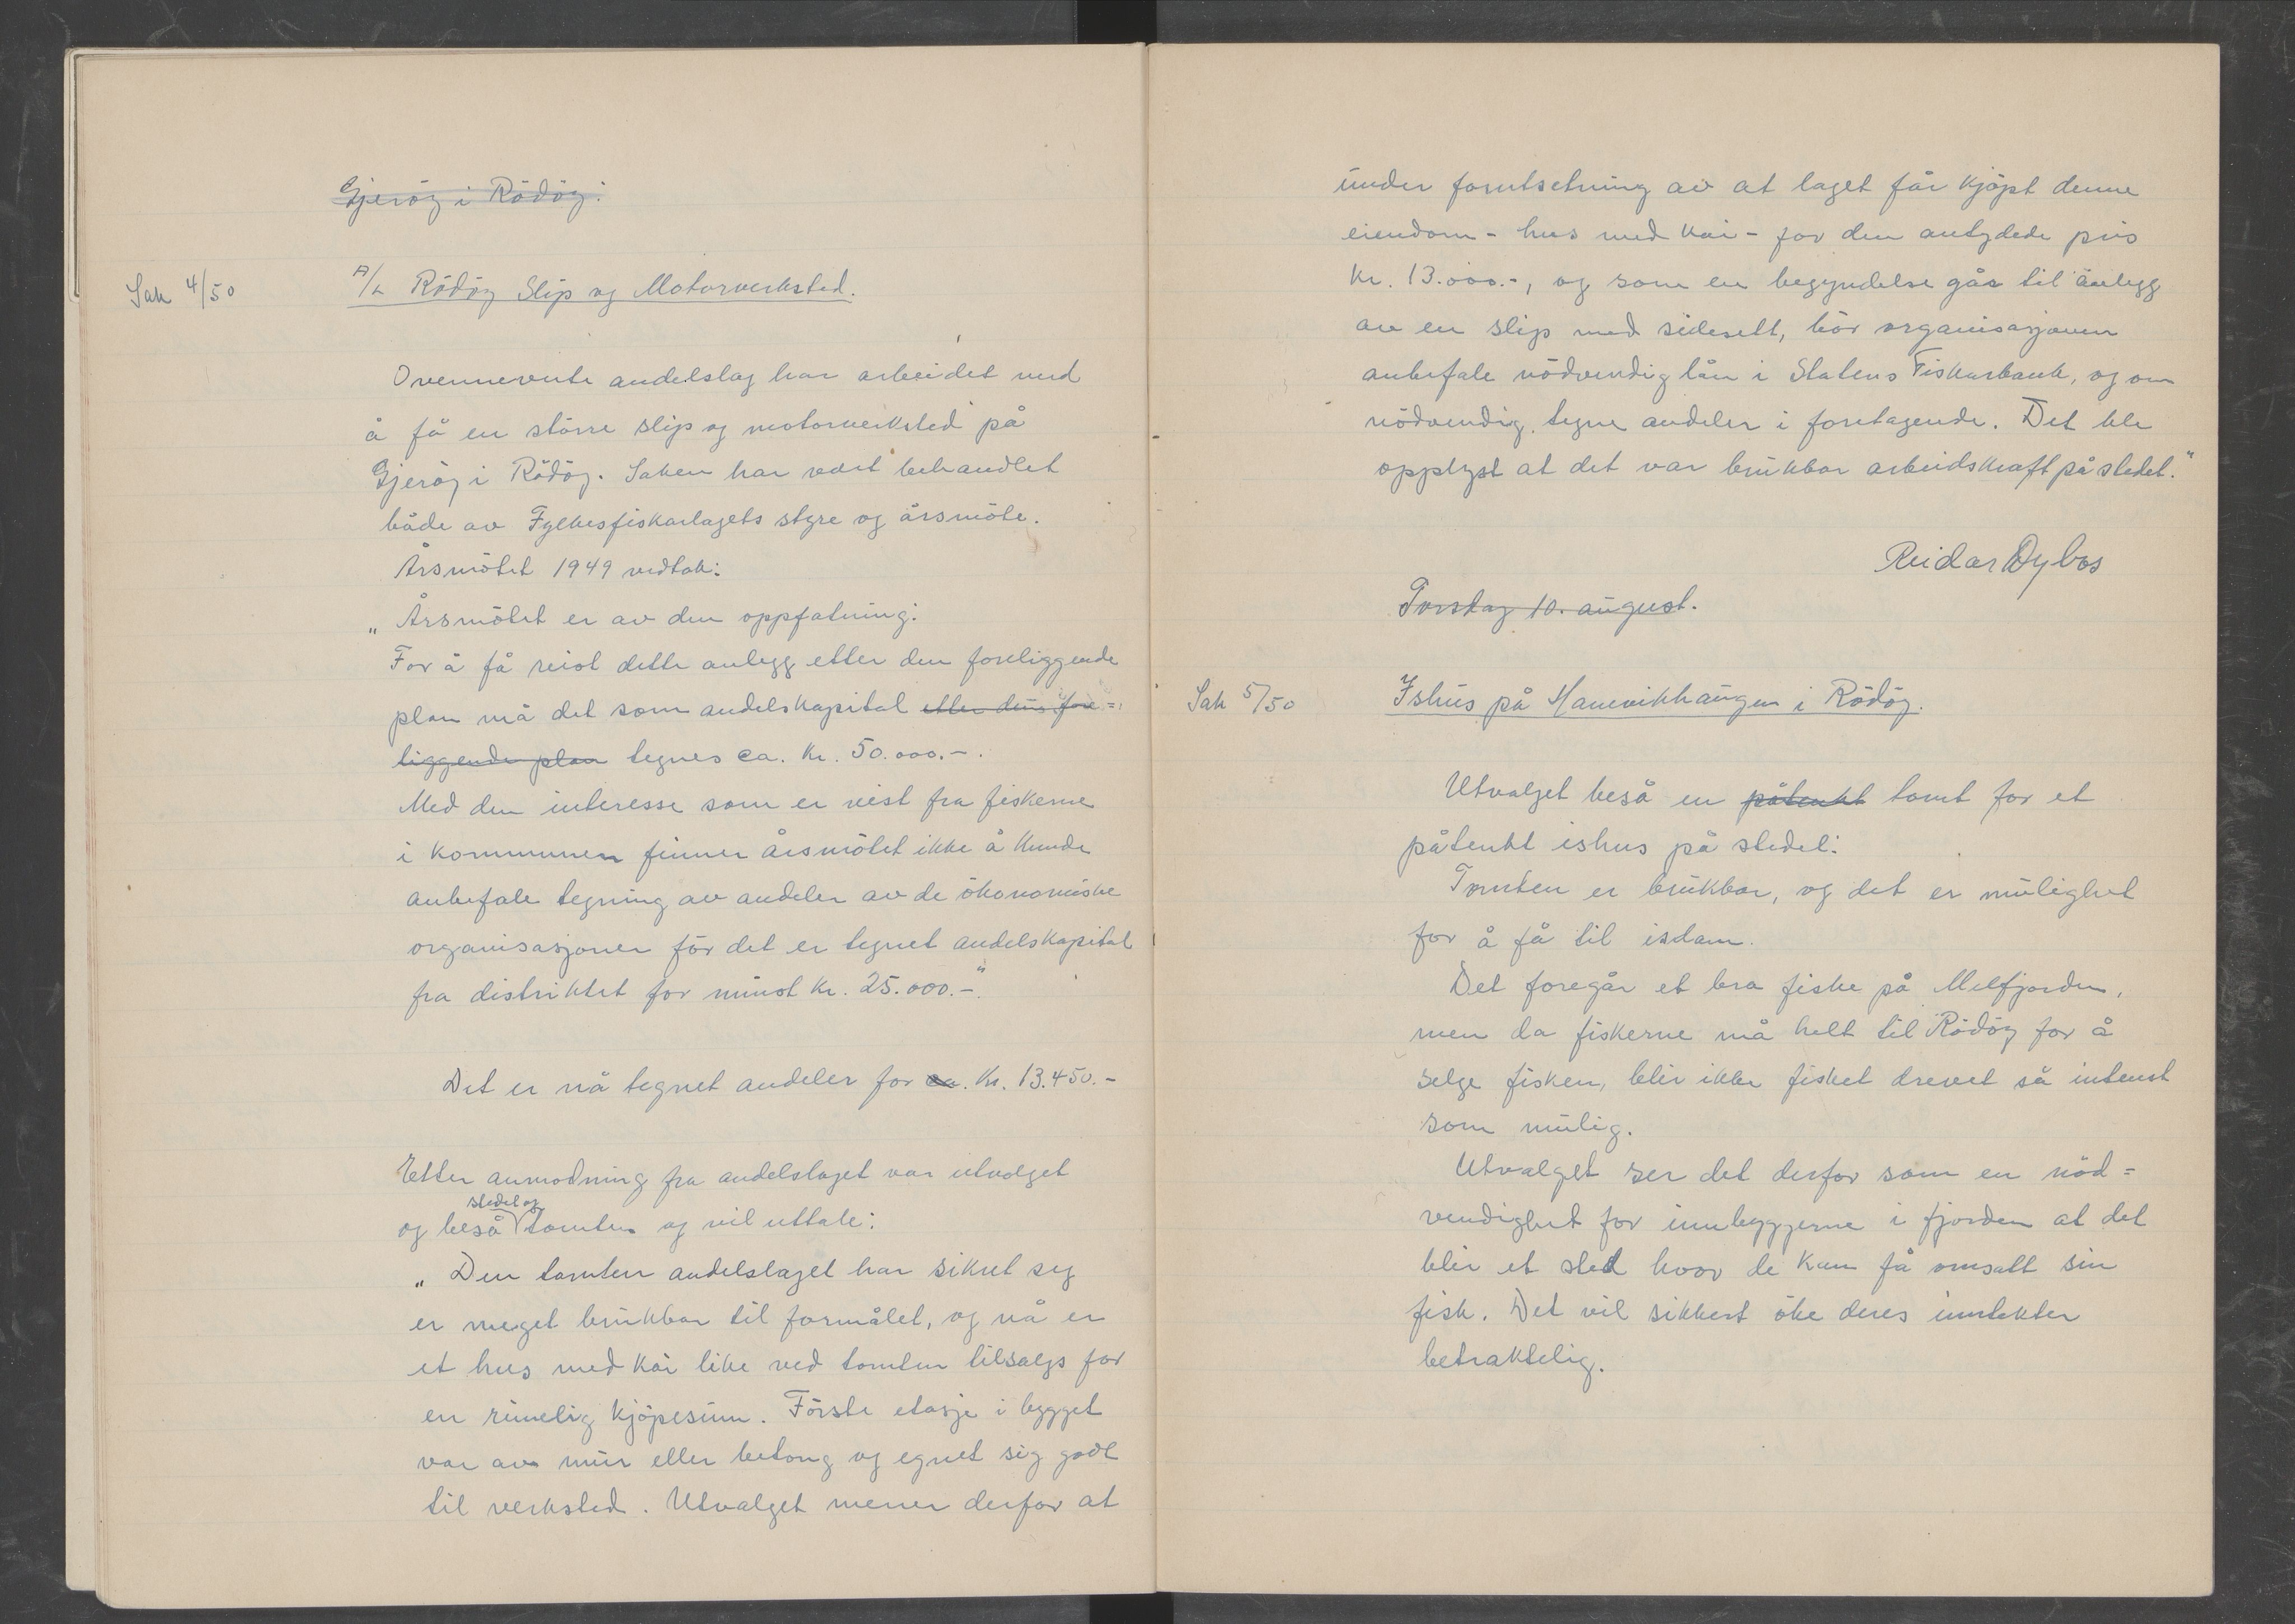 Gjeröy i Rödöy:
Sak 4/50
A/L Rödöy Slip og Motorverksted.
Ovennevnte andelslag har arbeidet med
å få en större slip og motorverksted på
Gjeröy i Rödöy. Saken har vært behandlet
både av Fylkesfiskarlagets styre og årsmöte.
Årsmötet 1949 vedtok:
„Årsmötet er av den oppfatning:
For å få reist dette anlegg etter den foreliggende
plan må det som andelskapital etter den fore=
liggende plan tegnes ca. kr. 50.000.-.
Med den interesse som er vist fra fiskerne
i kommunen finner årsmötet ikke å kunde
anbefale tegning av andeler av de ökonomiske
organisasjoner för det er tegnet andelskapital
fra distriktet for minst kr. 25.000.-."
Det er nå tegnet andeler for ca. kr. 13.450.-
Etter anmodning fra andelslaget var utvalget
stedet og
og beså tomten og vil uttale:
„Den tomten andelslaget har sikret seg
er meget brukbar til formålet, og nå er
et hus med kai like ved tomten tilsalgs for
en rimelig kjöpesum. Förste etasje i bygget
var av mur eller betong og egnet sig godt
til verksted. Utvalget mener derfor at
under forutsetning av at laget får kjöpt denne
eiendom - hus med kai - for den antydede pris
kr. 13.000.-, og som en begyndelse går til anlegg
av en slip med sidesett, bör organisasjonen
anbefale nödvendig lån i Statens Fiskarbank, og om
nödvendig, tegne andeler i foretagende. Det ble
opplyst at det var brukbar arbeidskraft på stedet."
Reidar Dybos
Torsdag 10. august.
Sak 5/50
Ishus på Manevikhaugen i Rödöy.
Utvalget beså en påtenkt tomt for et
påtenkt ishus på stedet:
Tomten er brukbar, og det er mulighet
for å få til isdam.
Det foregår et bra fiske på Melfjorden,
men da fiskerne må helt til Rödöy for å
selge fisken, blir ikke fisket drevet så intenst
som mulig.
Utvalget ser det derfor som en nöd=
vendighet for innbyggerne i fjorden at det
blir et sted hvor de kan få omsatt sin
fisk. Det vil sikkert öke deres inntekter
betraktelig.